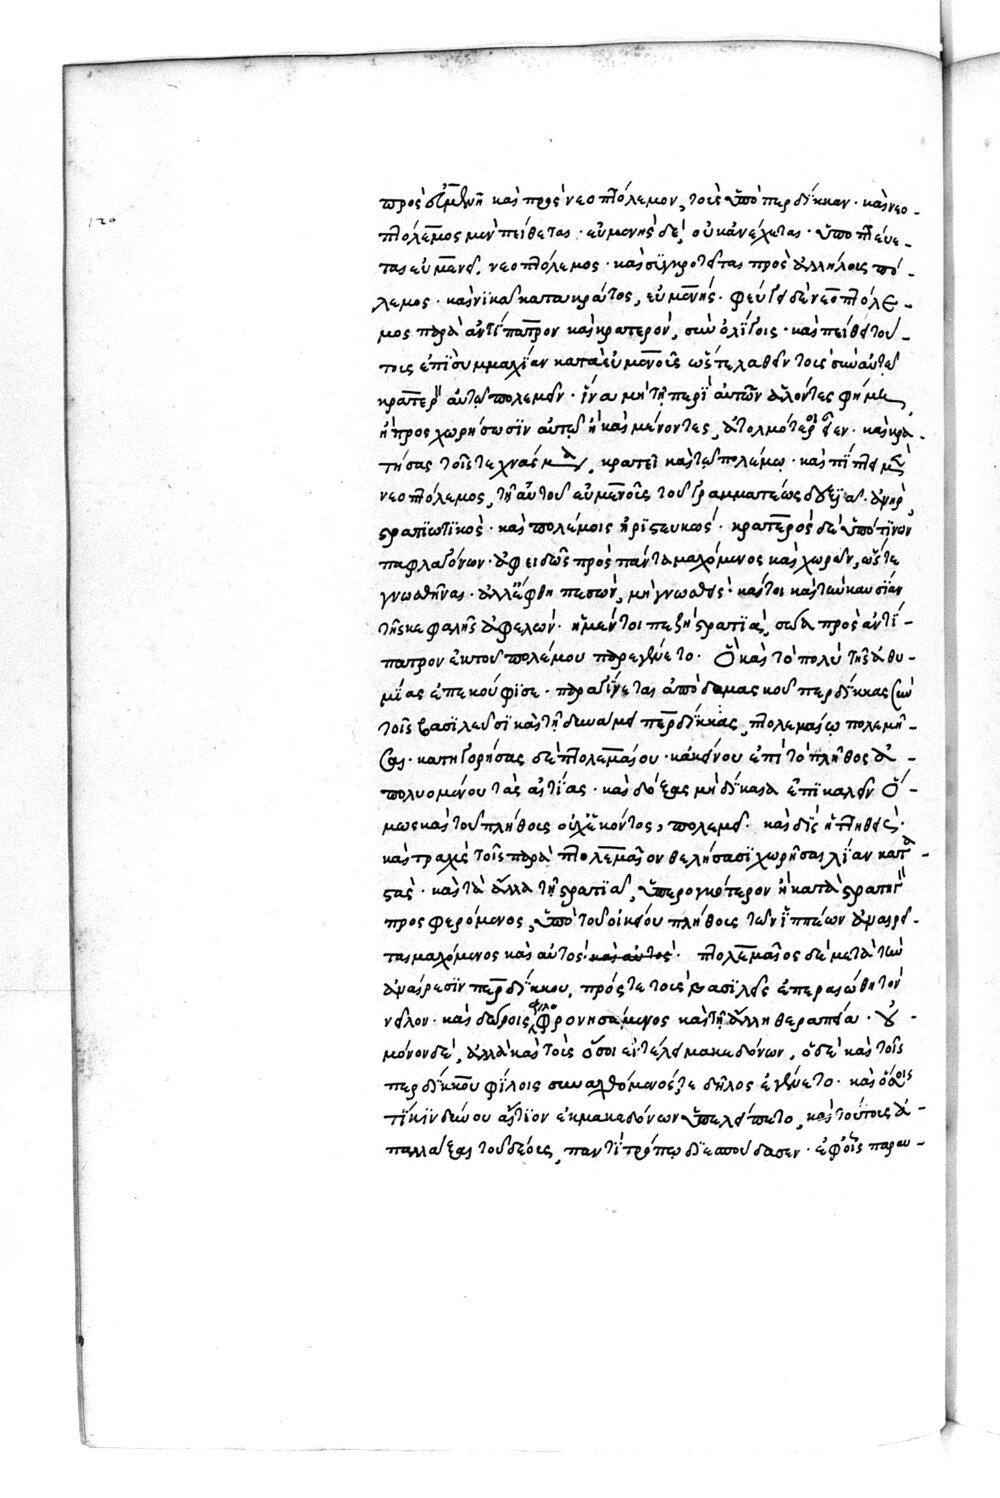 120
πρὸς εὐμένη καὶ πρὸς νεοπτόλεμον, τοὺς ὑπὸ περδίκκαν · καὶ νεο-
πτόλεμος μὲν πείθεται · εὐμένης δὲ, οὐκ ἀνέχεται ·
ται εὐμενεῖ, νεοπτόλεμος · καὶ συγκροτεῖται πρὸς ἀλλήλους πό-
λεμος · καὶ νικᾶ κατακράτος, εὐμένης · φεύγει δὲ νεοπτόλε-
μος παρὰ ἀντίπατρον καὶ κρατερὸν, σὺν ὀλίγοις · καὶ πείθει τού-
τους ἐπὶ συμμαχίαν κατὰ εὐμένους ὥστε λαθεῖν τοὺς σὺν αὐτῷ
κρατερῷ αὐτῷ πολεμεῖν · ἵνα μὴ τῇ περὶ αὐτῶν ἁλόντες φήμῃ
ἢ προσχωρήσωσιν αὐτῷ ἢ καὶ μένοντες, ἀτολμότεροι εἶεν · καὶ κρα-
τήσας τοῖς τεχνάσμασι, κρατεῖ καὶ τῷ πολέμῳ · καὶ πίπτει μὲν
νεοπτόλεμος, τῇ αὐτοῦ εὐμένους τοῦ γραμματέως δεξιᾷ · ἀνὴρ
στρατιωτικὸς · καὶ πολέμοις ἠριστευκὼς · κρατερὸς δὲ ὑπό τινων
παφλαγόνων · ἀφειδῶς πρὸς πάντα μαχόμενος καὶ χωρῶν, ὥστε
γνωσθῆναι · ἀλλ' ἔφθη πεσὼν, μὴ γνωσθεὶς · καίτοι καὶ τὴν καυσίαν
τῆς κεφαλῆς ἀφελών · ἡ μέντοι πεζὴ στρατιὰ, σῶα πρὸς ἀντί-
πατρον ἐκ τοῦ πολέμου παρεγένετο · ὃ καὶ τὸ πολὺ τῆς ἀθυ-
μίας ἐπεκούφισε · παραγίνεται ἀπὸ δαμασκοῦ περδίκκας σὺν
τοῖς βασιλεῦσι καὶ τῇ δυνάμει περδίκκας, πτολεμαίῳ πολεμή-
σας · κατηγορήσας δὲ πτολεμαίου · κἀκείνου ἐπὶ τὸ πλῆθος ἀ-
πολυομένου τὰς αἰτίας · καὶ δόξας μὴ δίκαια ἐπικαλεῖν ὅ-
μως καὶ τοῦ πλήθους οὐχ ἑκόντος, πολεμεῖ · καὶ δὶς ἡττηθεὶς ·
καὶ τραχὺς τοῖς παρὰ πτολεμαῖον θελήσασι χωρῆσαι λίαν κατα-
στὰς · καὶ τὰ ἄλλα τῇ στρατιᾷ, ὑπερογκότερον ἢ κατὰ στρατηγὸν
προσφερόμενος, ὑπὸ τοῦ οἰκείου πλήθους τῶν ἱππέων ἀναιρεῖ-
ται μαχόμενος καὶ αὐτὸς · καὶ αὐτὸς · πτολεμαῖος δὲ μετὰ τὴν
ἀναίρεσιν περδίκκου, πρός τε τοὺς βασιλεῖς ἐπεραιώθη τὸν
νεῖλον · καὶ δώροις, φιλοφρονησάμενος καὶ τῇ ἄλλῃ θεραπείᾳ · οὐ
μόνον δὲ, ἀλλὰ καὶ τοὺς ὅσοι ἐν τέλει μακεδόνων, ὁ δὲ καὶ τοῖς
περδίκκου φίλοις συναχθόμενός τε δῆλος ἐγένετο · καὶ ὅσοις
τι κινδύνου αἴτιον ἐκ μακεδόνων ὑπελείπετο, καὶ τούτους ἀ-
παλλάξαι τοῦ δέους, παντὶ τρόπῳ διεσπούδασεν · ἐφ' οἷς παραυ-